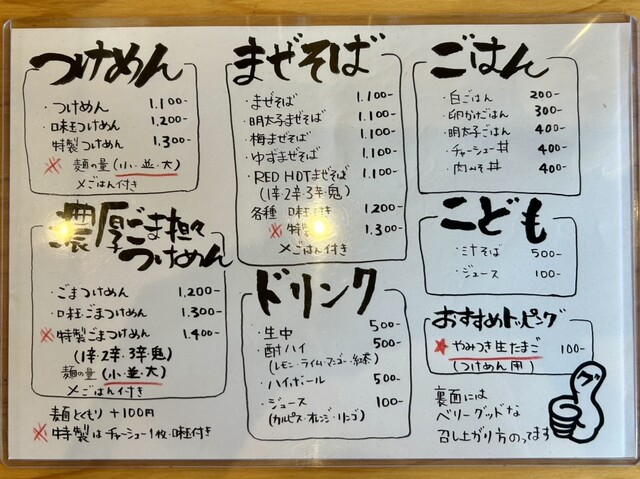 つけめん
・つけめん 1.100-
・味玉つけめん 1.200-
特製つけめん 1.300-
※ 麺の量(小・並・大)
〆ごはん付き
濃厚ごま担々
つけめん
・ごまつけめん 1.200-
・味玉ごまつけめん 1.300-
※特製ごまつけめん 1.400-
(1辛・2辛・3辛・鬼)
麺の量(小・並・大)
〆ごはん付き
麺大もり +100円
※特製はチャーシュー1枚・味玉付き
まぜそば
・まぜそば 1.100-
・明太子まぜそば 1.100-
・梅まぜそば 1.100-
・ゆずまぜそば 1.100-
・RED HOTまぜそば 1.100-
(1辛・2辛・3辛・鬼)
各種 味玉付き 1.200-
※特製 1.300-
〆ごはん付き
ドリンク
・生中 500-
・酎ハイ 500-
(レモン・ライム・マンゴー・紅茶)
・ハイボール 500-
・ジュース 100-
(カルピス・オレンジ・リンゴ)
ごはん
・白ごはん 200-
・卵かけごはん 300-
・明太子ごはん 400-
・チャーシュー丼 400-
・肉みそ丼 400-
こども
・ミニそば 500-
・ジュース 100-
おすすめトッピング
★やみつき生たまご 100-
(つけめん用)
裏面には
ベリーグッドな
召し上がり方のってます